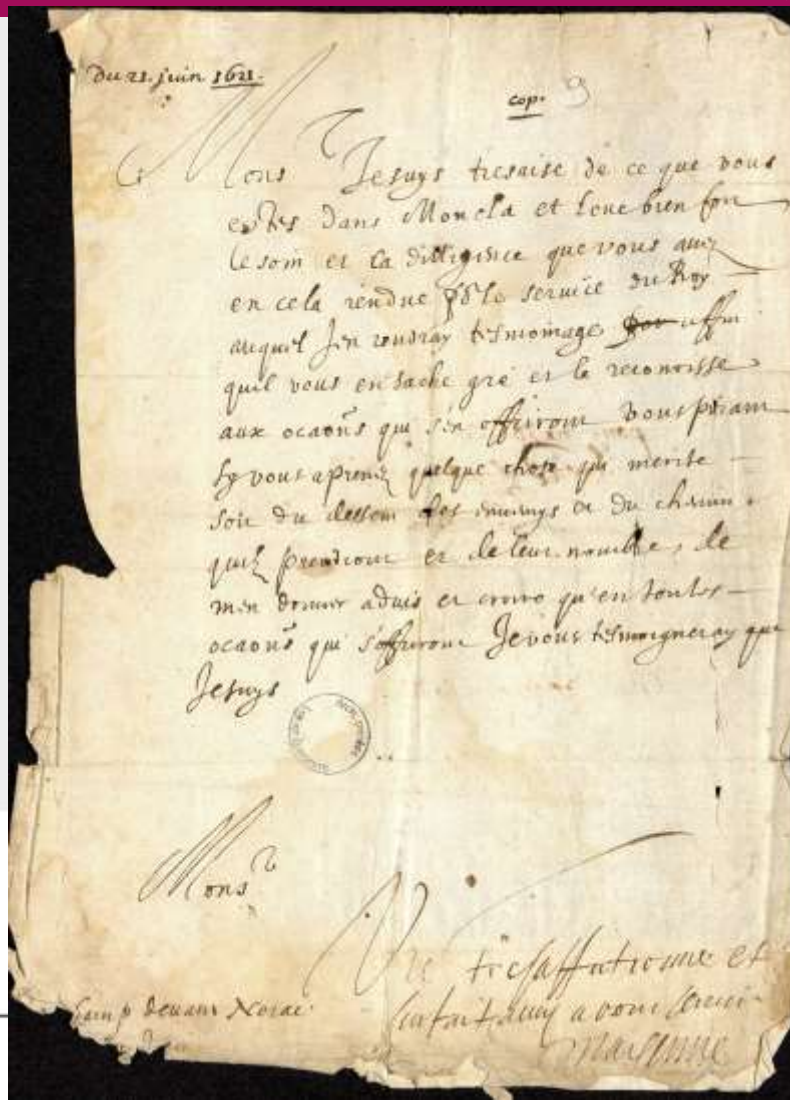 Du 21. juin 1621.
cop. 9
Monsr Je suys tresaise de ce que vous
estes dans Moncla et loue bien fort
le soin et la dilligence que vous avez
en cela rendue por le service du Roy
auquel J'en rendray tesmoinage pour affin
quil vous en sache gré et le reconoisse
aux ocaons qui s'en offriront vous priant
sy vous aprenez quelque chose qui merite
soit du dessein des ennemys et du chemin
quilz prendront et de leur nombre, de
m'en donner advis et croire qu'en toutes
ocaons qui s'offriront Je vous tesmoigneray que
Je suys
Monsr
Vre tresaffectionné et
parfait amy a vous servir
Mayenne
camp devant Nerac